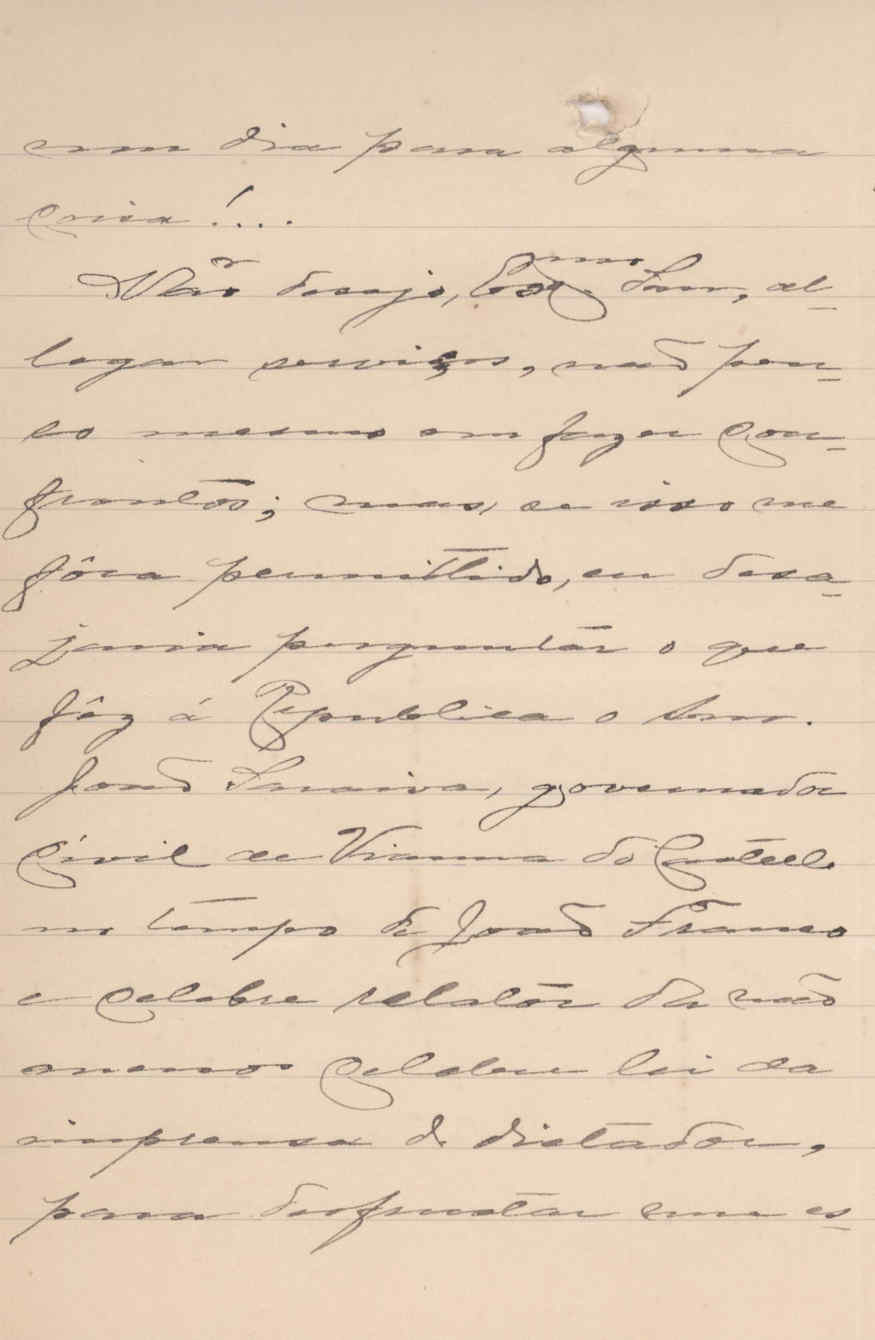 um dia para alguma
coisa!...
Não desejo, Exmo. Snr., al-
legar serviços, não pen-
so mesmo em fazer con-
frontos; mas, se isso me
fôra permittido, eu dese-
jaria perguntar o que
fêz á Republica o snr.
João Saraiva, governador
Civil de Vianna do Castello
no tempo de João Franco
e celebre relator da não
menos celebre lei da
imprensa do dictador,
para desfructar um es-